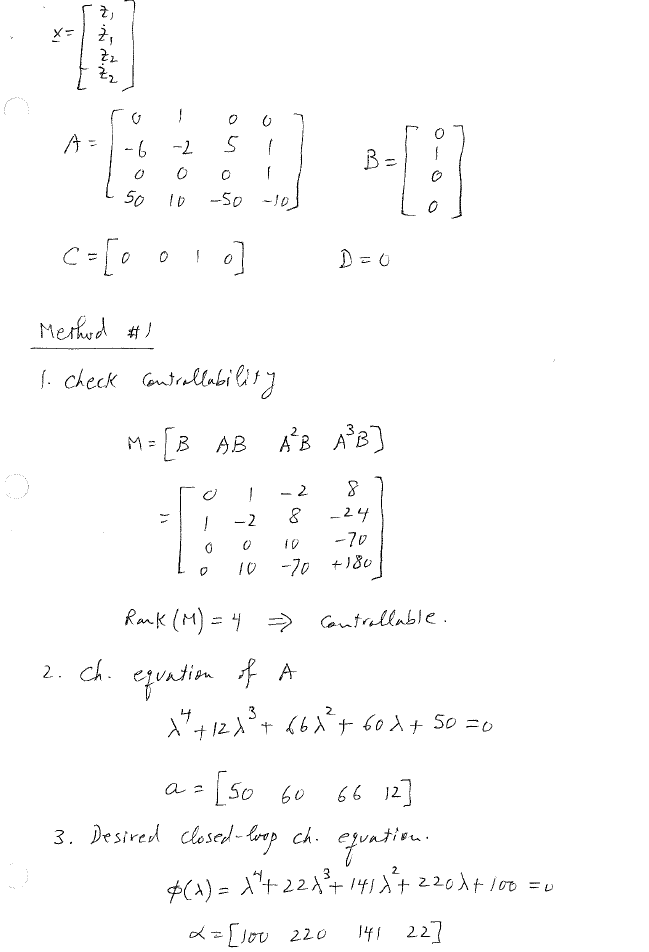 x = [ z₁ ; ż₁ ; z₂ ; ż₂ ]
A = [ 0 1 0 0 ; -6 -2 5 1 ; 0 0 0 1 ; 50 10 -50 -10 ]    B = [ 0 ; 1 ; 0 ; 0 ]
C = [0 0 1 0]    D = 0
Method #1
1. Check Controllability
M = [B AB A²B A³B]
= [ 0 1 -2 8 ; 1 -2 8 -24 ; 0 0 10 -70 ; 0 10 -70 +180 ]
Rank (M) = 4 ⇒ Controllable.
2. Ch. equation of A
λ⁴ + 12λ³ + 66λ² + 60λ + 50 = 0
a = [50 60 66 12]
3. Desired closed-loop ch. equation.
φ(λ) = λ⁴ + 22λ³ + 141λ² + 220λ + 100 = 0
α = [100 220 141 22]